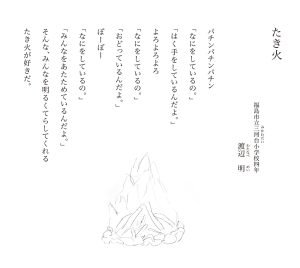 たき火
福島市立三河台小学校四年
渡辺 明
パチンパチンパチン
「なにをしているの。」
「はく手をしているんだよ。」
よろよろよろ
「なにをしているの。」
「おどっているんだよ。」
ぼーぼー
「なにをしているの。」
「みんなをあたためているんだよ。」
そんな、みんなを明るくてらしてくれる
たき火が好きだ。